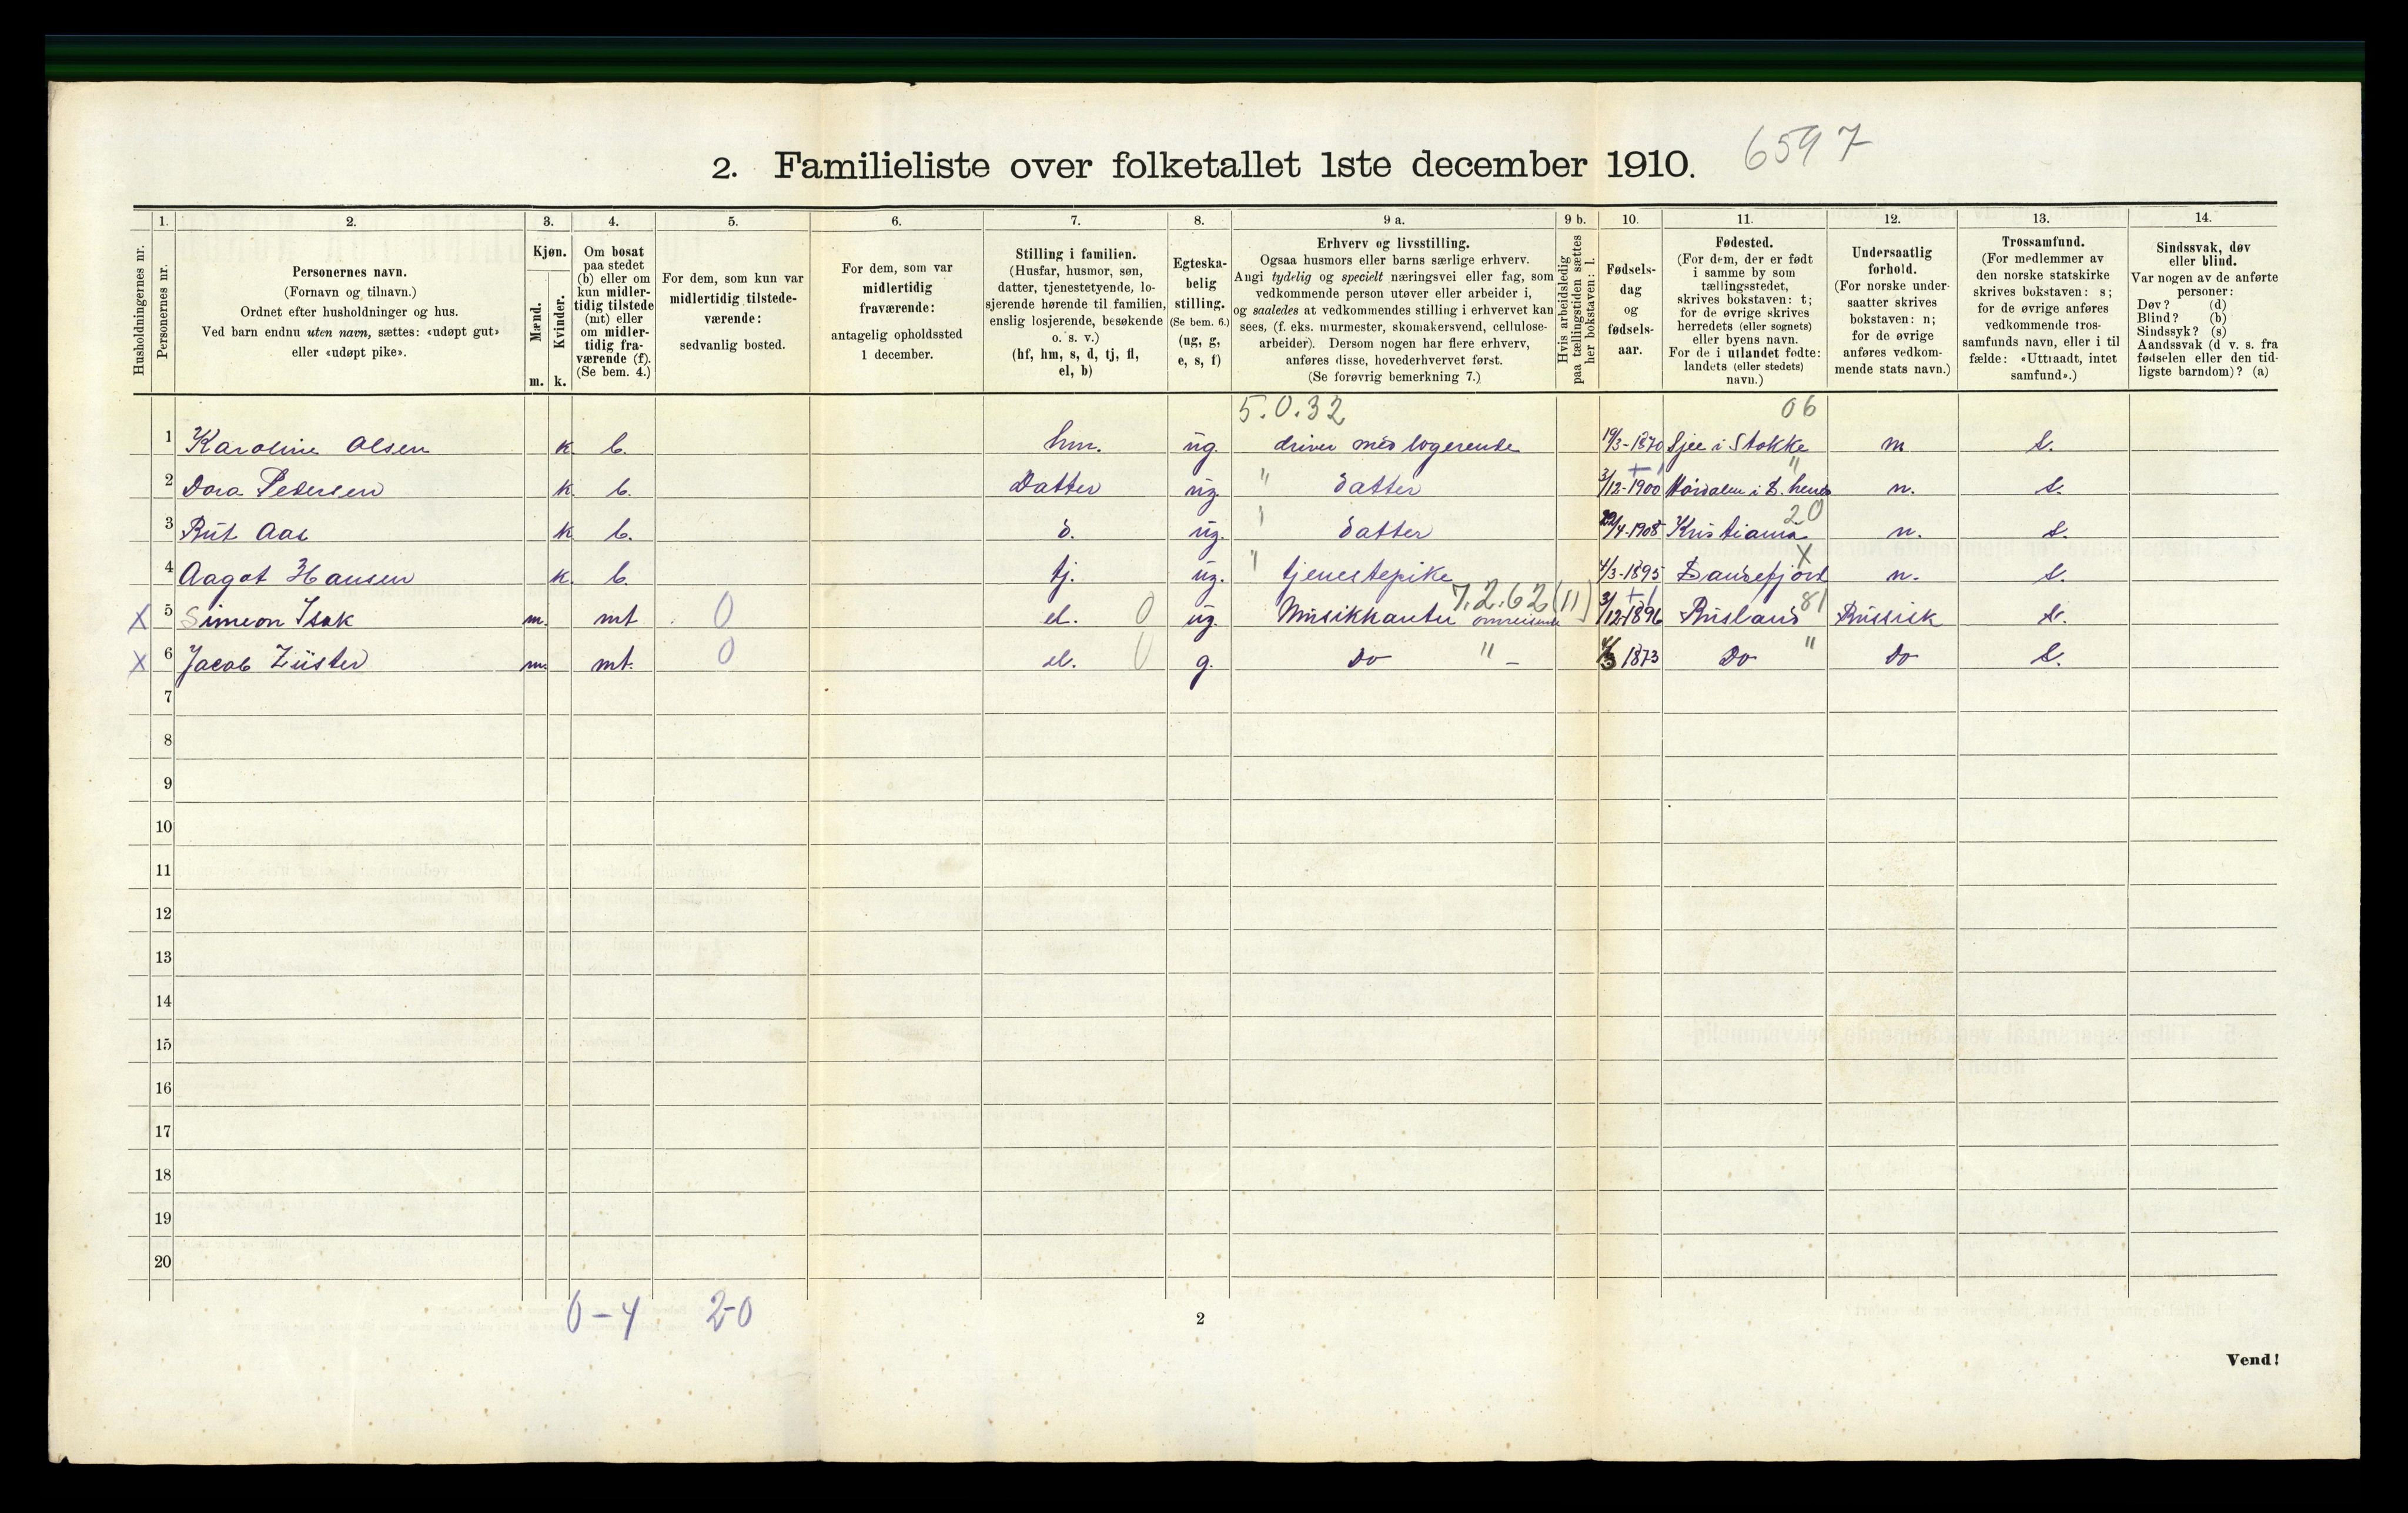 2. Familieliste over folketallet 1ste december 1910. 6597
Husholdningernes nr.
1. Personernes nr.
2. Personernes navn.
(Fornavn og tilnavn.)
Ordnet efter husholdninger og hus.
Ved barn endnu uten navn, sættes: «udøpt gut»
eller «udøpt pike».
3. Kjøn.
Mænd. m.
Kvinder. k.
4. Om bosat
paa stedet
(b) eller om
kun midler-
tidig tilstede
(mt) eller
om midler-
tidig fra-
værende (f).
(Se bem. 4.)
5. For dem, som kun var
midlertidig tilstede-
værende:
sedvanlig bosted.
6. For dem, som var
midlertidig
fraværende:
antagelig opholdssted
1 december.
7. Stilling i familien.
(Husfar, husmor, søn,
datter, tjenestetyende, lo-
sjerende hørende til familien,
enslig losjerende, besøkende
o. s. v.)
(hf, hm, s, d, tj, fl,
el, b)
8. Egteska-
belig
stilling.
(Se bem. 6.)
(ug, g,
e, s, f)
9 a. Erhverv og livsstilling.
Ogsaa husmors eller barns særlige erhverv.
Angi tydelig og specielt næringsvei eller fag, som
vedkommende person utøver eller arbeider i,
og saaledes at vedkommendes stilling i erhvervet kan
sees, (f. eks. murmester, skomakersvend, cellulose-
arbeider). Dersom nogen har flere erhverv,
anføres disse, hovederhvervet først.
(Se forøvrig bemerkning 7.)
9 b. Hvis arbeidsledig
paa tællingstiden sættes
her bokstaven: l.
10. Fødsels-
dag
og
fødsels-
aar.
11. Fødested.
(For dem, der er født
i samme by som
tællingsstedet,
skrives bokstaven: t;
for de øvrige skrives
herredets (eller sognets)
eller byens navn.
For de i utlandet fødte:
landets (eller stedets)
navn.)
12. Undersaatlig
forhold.
(For norske under-
saatter skrives
bokstaven: n;
for de øvrige
anføres vedkom-
mende stats navn.)
13. Trossamfund.
(For medlemmer av
den norske statskirke
skrives bokstaven: s;
for de øvrige anføres
vedkommende tros-
samfunds navn, eller i til
fælde: «Uttraadt, intet
samfund».)
14. Sindssvak, døv
eller blind.
Var nogen av de anførte
personer:
Døv? (d)
Blind? (b)
Sindssyk? (s)
Aandssvak (d v. s. fra
fødselen eller den tid-
ligste barndom)? (a)
5.0.32 06
1 Karoline Olsen k. b. hm. ug. driver med logerende 19/3-1870 i Stokke n s.
2 Dora Pedersen k. b. Datter ug. " datter 3/12-1900 n. s.
3 Rut Aas k b. d. ug. " datter 22/4-1908 Kristiania 20 n. s.
4 Aagot Hansen k. b. tj. ug. " tjenestepike 4/3-1895 Sandefjord X n. s.
X 5 Simeon Isak m. mt 0 el. 0 ug. Musikkanter omreisende 7.2.62 (11) 31/12-1896 Rusland 81 Russisk s.
X 6 Jacob Züster m. mt. 0 el. 0 g. Do " - 1873 Do " Do s.
7
8
9
10
11
12
13
14
15
16
17
18
19
20
0-4 2-0
2
Vend!